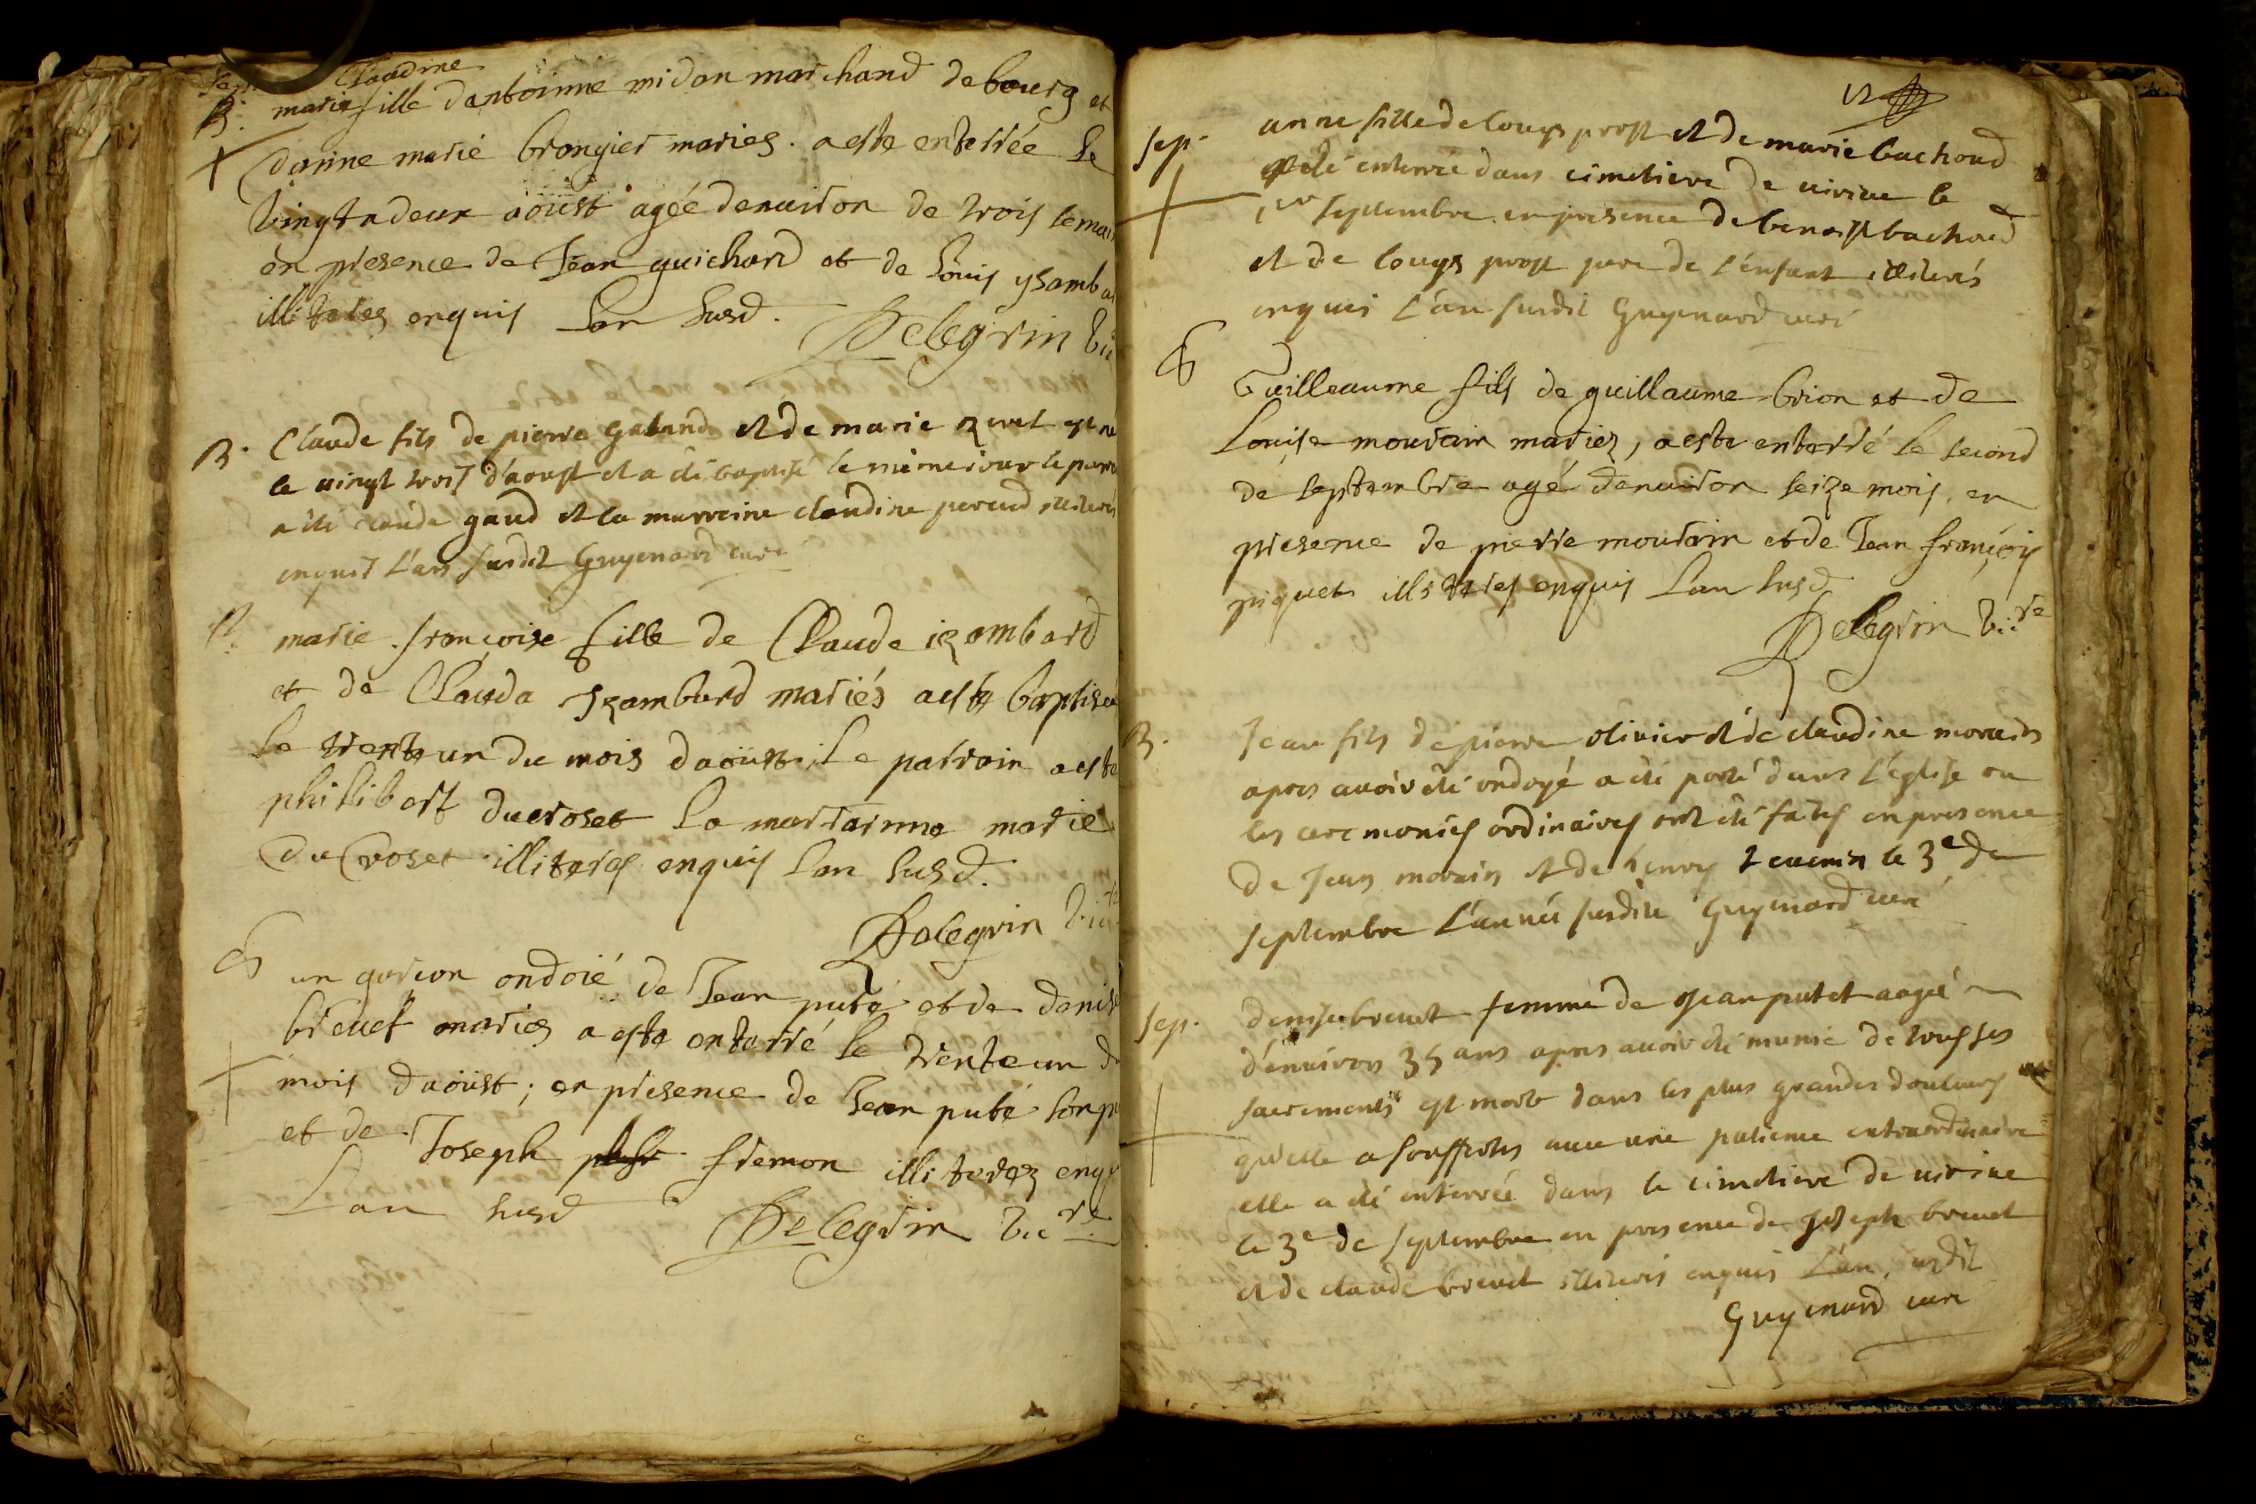 Sep. Claudine
B. marie fille dantoinne midan marchand de bourg et
danne marie brongier mariés. a esté enterrée le
vingtadeux aoust agée denuiron de trois semai
en presence de Jean guichard et de Louis ysamba
illiteres enquis Lan susd.
Delegrin vic
B. Claude fils de pierre galand et de marie est né
le vingt trois d'aoust et a été baptisé le même iour le parr
a été claude gaud et la marreine claudine perend illiteres
enquis L'an susdit Guymard curé
B. marie françoise fille de Claude izambard
et de Clauda Izambard mariés a esté baptisée
le trente un du mois daoust; le parrain a esté
philibert ducroset la marrainne marie
du Croset illiteres enquis Lan susd.
Delegrin vic
un garcon ondoié de Jean puté et de denise
breuet mariés a esté enterré le trente un du
mois daoust; en presence de Jean puté son p
et de Joseph fremon illiterez enqu
Lan susd
Delegrin Vic.re
12
Sep. anne fille de Louys prost et de marie bachoud
a été enterrée dans cimetiere de uirieu le
1er septembre en presence de benoist bachoud
et de Louys prost pere de l'enfant illiterés
enquis L'an susdit Guymard curé
Guilleaume fils de guillaume brion et de
Louise mourain mariez, a esté enterré le second
de septembre agé denuiron seize mois, en
presence de pierre mourain et de Jean françois
piquet illiteres enquis Lan susd
Delegrin Vic.re
B. Jean fils de pierre oliuier et de claudine morain
apres auoir été ondoyé a été porté dans l'église ou
les ceremonies ordinaires ont été faites en presence
de Jean morain et de henry le 3e de
septembre L'année susdite Guymard curé
Sep. denise breuet femme de Jean putet aagée
d'enuiron 35 ans apres auoir été munie de tous ses
sacrements est morte dans les plus grandes douleurs
qu'elle a souffertes auec une patience extraordinaire
elle a été enterrée dans le cimetiere de uirieu
le 3e de septembre en presence de Joseph breuet
et de claude breuet illiterés enquis L'an susdit
Guymard curé